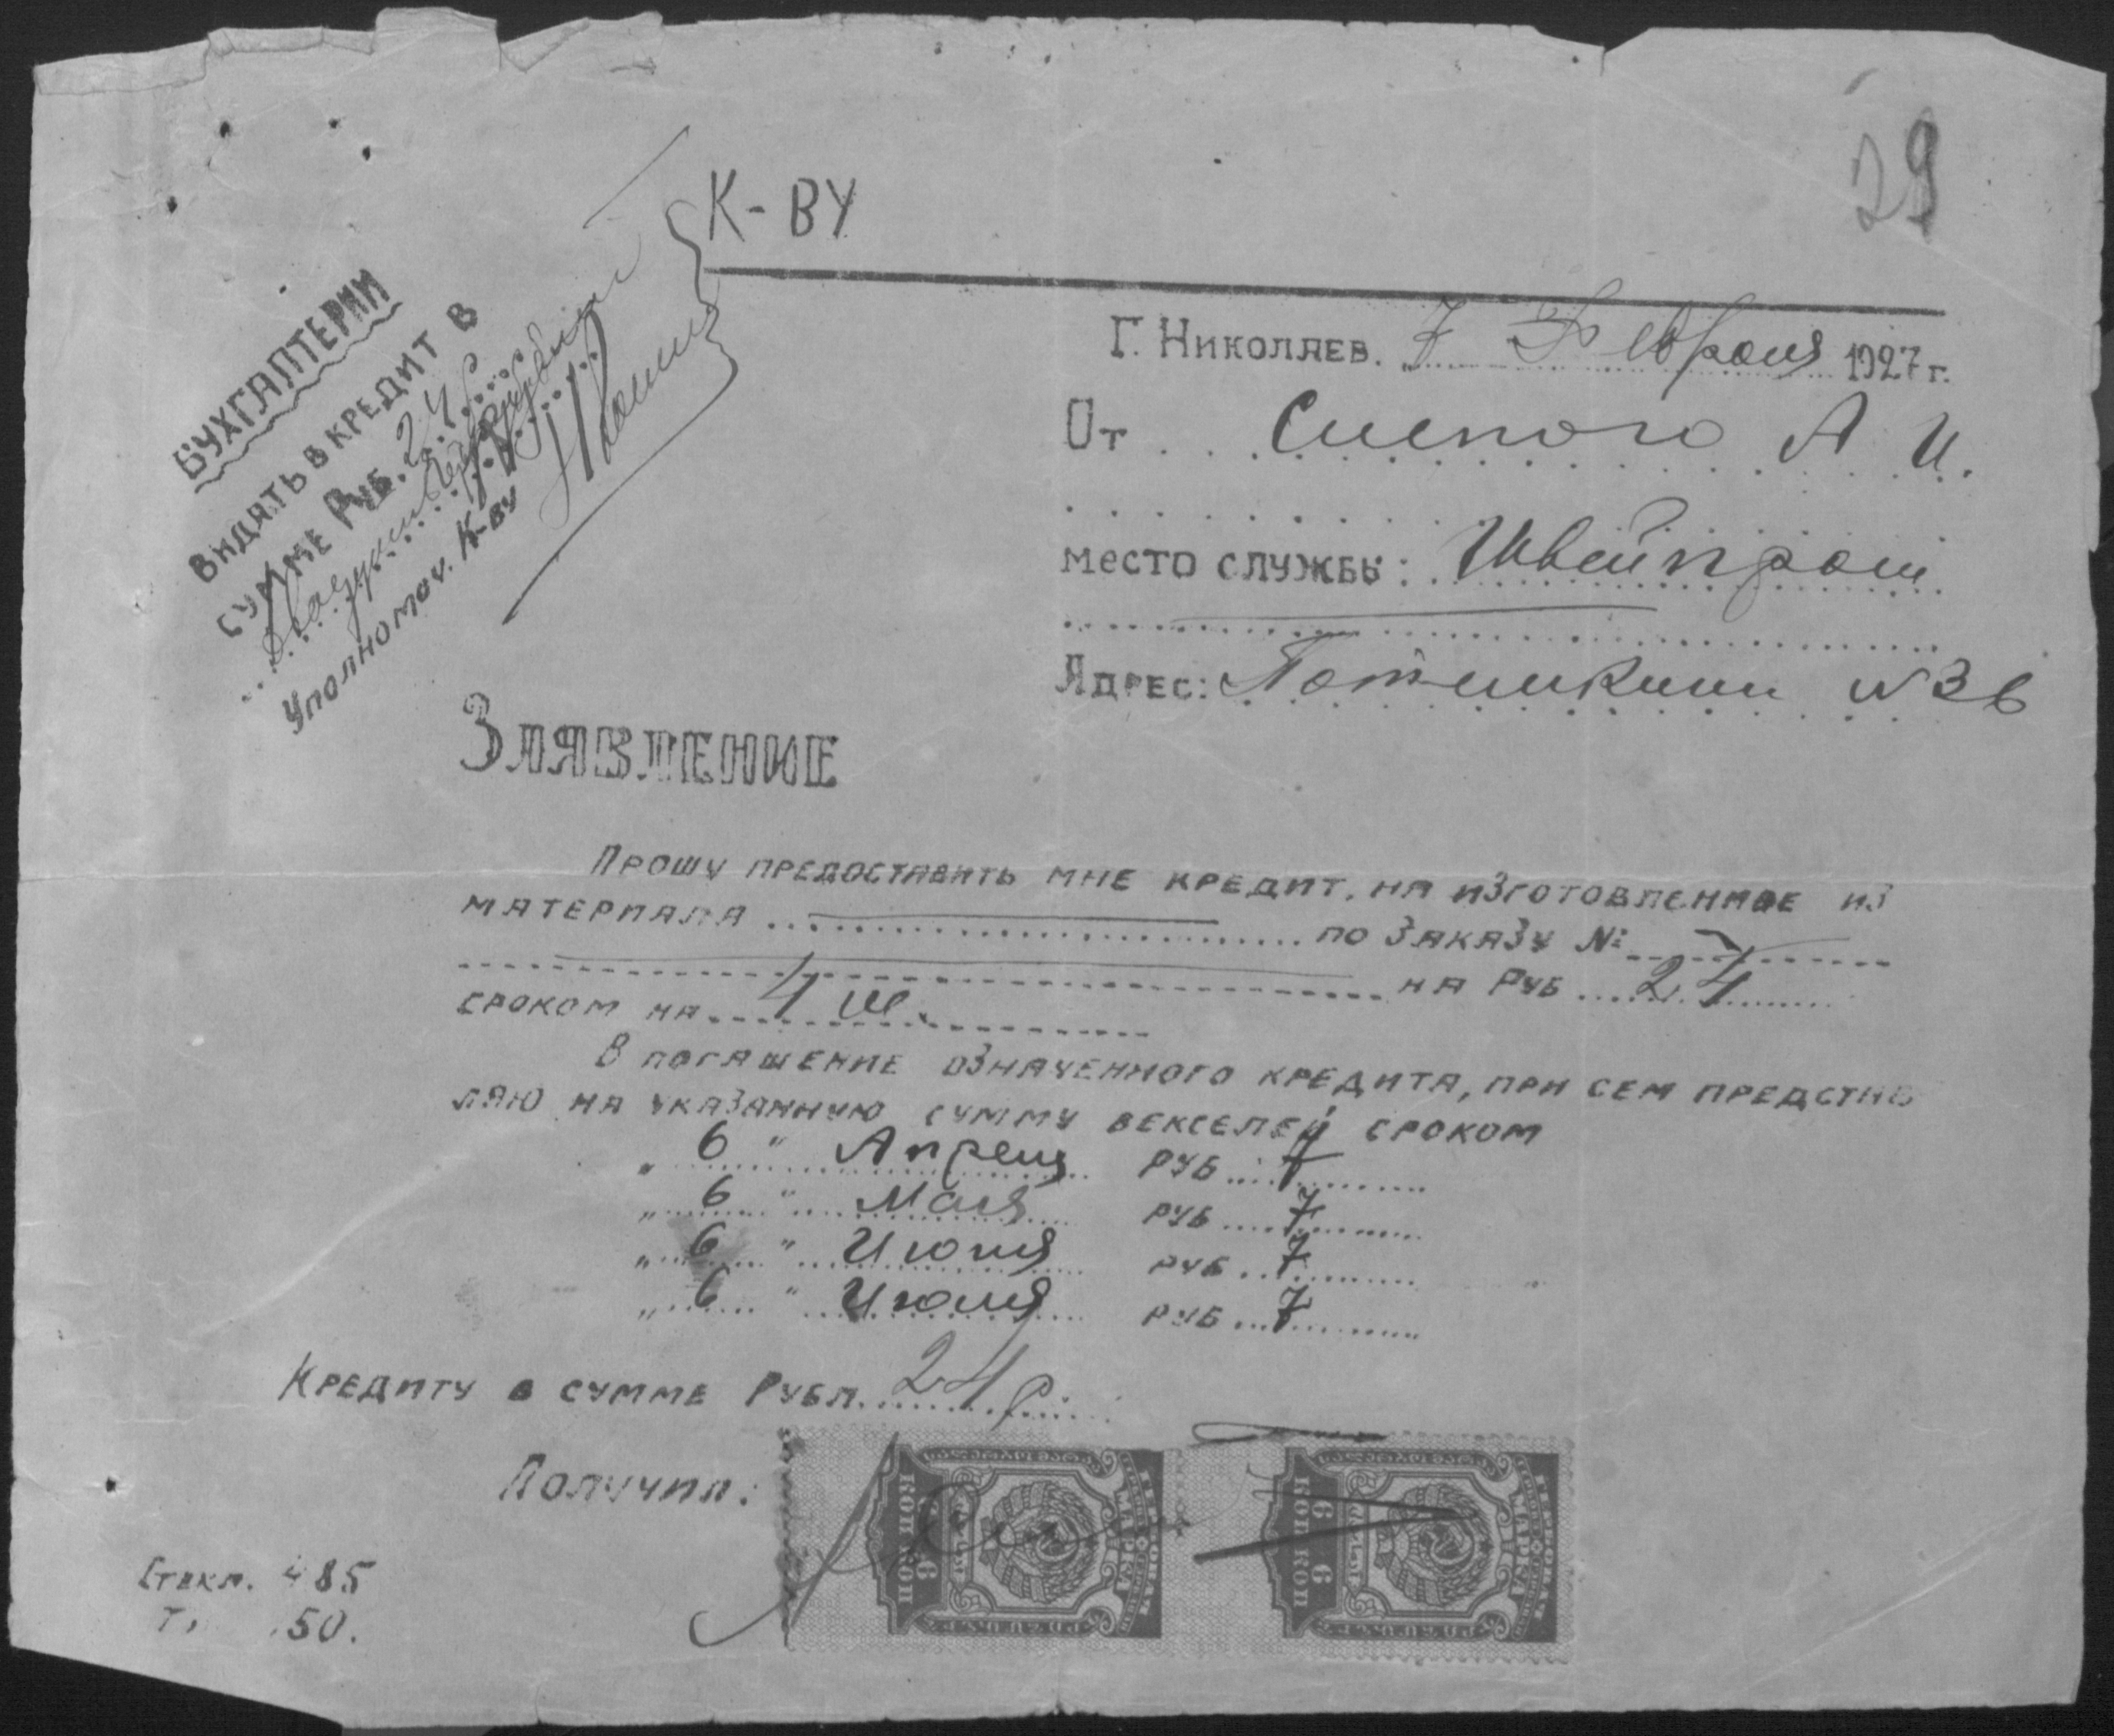 29
К-ВУ
БУХГАЛТЕРИИ
ВИДАТЬ В КРЕДИТ В
СУММЕ РУБ. 24
УПОЛНОМОЧ. К-ВУ
Г. НИКОЛАЕВ. 7 Февраля 1927 г.
ОТ Слепого А И.
МЕСТО СЛУЖБЫ: Швейпром
АДРЕС: Потемкин N 36
ЗАЯВЛЕНИЕ
ПРОШУ ПРЕДОСТАВИТЬ МНЕ КРЕДИТ, НА ИЗГОТОВЛЕННОЕ ИЗ
МАТЕРИАЛА ПО ЗАКАЗУ №
НА РУБ 24
СРОКОМ НА 4 м.
В ПОГАШЕНИЕ ОЗНАЧЕННОГО КРЕДИТА, ПРИ СЕМ ПРЕДСТАВ
ЛЯЮ НА УКАЗАННУЮ СУММУ ВЕКСЕЛЕЙ СРОКОМ
„ 6 " Апреля РУБ 7
„ 6 " Мая РУБ 7
„ 6 " Июня РУБ 7
„ 6 " Июля РУБ 7
КРЕДИТУ В СУММЕ РУБЛ. 24 р
ПОЛУЧИЛ:
ГЕРБОВАЯ МАРКА
6 6
КОП КОП
ГЕРБОВАЯ МАРКА
6 6
КОП КОП
СТЕКЛ. 485
Т. 50.